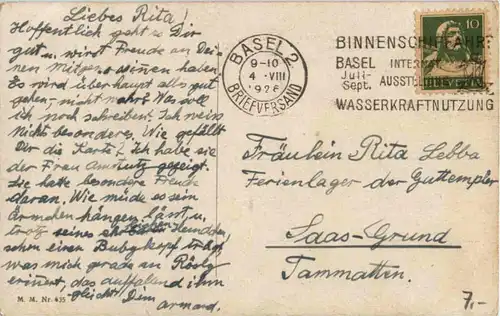 Liebes Rita!
Hoffentlich geht es Dir
gut u. wirst Freude an Dei-
nen haben.
Es wird überhaupt alles gut
gehen, nicht wahr? Was soll
ich noch schreiben? Ich weiss
Nichts besonderes. Wie gefällt
Dir die Karte? Ich habe sie
der Frau Amstutz gezeigt.
Sie hatte besondere Freude
daran. Wie müde es sein
Ärmchen hängen lässt, u.
trotz seines Hemdchen
schon einen Bubykopf trägt,
was mich gerade an Rösly
erinert, das auffallend ihm
gleicht. Dein
Armand.
M. M. Nr. 435
BASEL 2
9-10
4 ·VIII
1926
BRIEFVERSAND
BINNENSCHIFFAHRT
BASEL INTERNAT.
Juli- AUSSTELLUNG
Sept.
WASSERKRAFTNUTZUNG
10
HELVETIA
Fräulein Rita Lebba
Ferienlager der Guttempler
Saas-Grund
Tammatten.
7,-